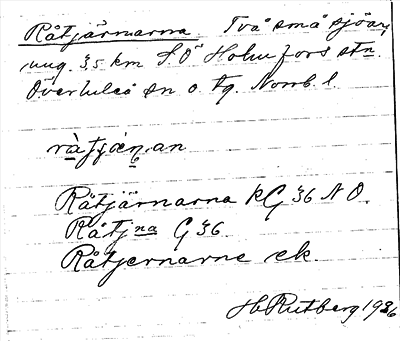 Råtjärnarna. Två små sjöar,
ung. 3,5 km S.O Holmfors stn
Överluleå sn o. tg. Norrb. l.
ràtjæ̀ṇan
Råtjärnarna kG 36 N O.
Råtjna G 36.
Råtjernarne ek.
H Rutberg 1936